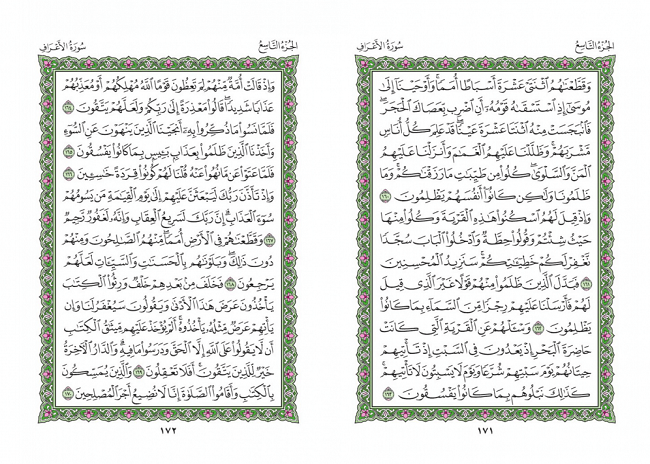 الجزء التاسع
سورة الأعراف
وَقَطَّعْنَٰهُمُ ٱثْنَتَىْ عَشْرَةَ أَسْبَاطًا أُمَمًا ۚ وَأَوْحَيْنَآ إِلَىٰ
مُوسَىٰٓ إِذِ ٱسْتَسْقَىٰهُ قَوْمُهُۥٓ أَنِ ٱضْرِب بِّعَصَاكَ ٱلْحَجَرَ ۖ
فَٱنۢبَجَسَتْ مِنْهُ ٱثْنَتَا عَشْرَةَ عَيْنًا ۖ قَدْ عَلِمَ كُلُّ أُنَاسٍ
مَّشْرَبَهُمْ ۚ وَظَلَّلْنَا عَلَيْهِمُ ٱلْغَمَٰمَ وَأَنزَلْنَا عَلَيْهِمُ
ٱلْمَنَّ وَٱلسَّلْوَىٰ ۖ كُلُوا۟ مِن طَيِّبَٰتِ مَا رَزَقْنَٰكُمْ ۚ وَمَا
ظَلَمُونَا وَلَٰكِن كَانُوٓا۟ أَنفُسَهُمْ يَظْلِمُونَ ١٦٠
وَإِذْ قِيلَ لَهُمُ ٱسْكُنُوا۟ هَٰذِهِ ٱلْقَرْيَةَ وَكُلُوا۟ مِنْهَا
حَيْثُ شِئْتُمْ وَقُولُوا۟ حِطَّةٌ وَٱدْخُلُوا۟ ٱلْبَابَ سُجَّدًا
نَّغْفِرْ لَكُمْ خَطِيٓـَٰٔتِكُمْ ۚ سَنَزِيدُ ٱلْمُحْسِنِينَ
١٦١ فَبَدَّلَ ٱلَّذِينَ ظَلَمُوا۟ مِنْهُمْ قَوْلًا غَيْرَ ٱلَّذِى قِيلَ
لَهُمْ فَأَرْسَلْنَا عَلَيْهِمْ رِجْزًا مِّنَ ٱلسَّمَآءِ بِمَا كَانُوا۟
يَظْلِمُونَ ١٦٢ وَسْـَٔلْهُمْ عَنِ ٱلْقَرْيَةِ ٱلَّتِى كَانَتْ
حَاضِرَةَ ٱلْبَحْرِ إِذْ يَعْدُونَ فِى ٱلسَّبْتِ إِذْ تَأْتِيهِمْ
حِيتَانُهُمْ يَوْمَ سَبْتِهِمْ شُرَّعًا وَيَوْمَ لَا يَسْبِتُونَ ۙ لَا تَأْتِيهِمْ ۚ
كَذَٰلِكَ نَبْلُوهُم بِمَا كَانُوا۟ يَفْسُقُونَ ١٦٣
١٧١
الجزء التاسع
سورة الأعراف
وَإِذْ قَالَتْ أُمَّةٌ مِّنْهُمْ لِمَ تَعِظُونَ قَوْمًا ۙ ٱللَّهُ مُهْلِكُهُمْ أَوْ مُعَذِّبُهُمْ
عَذَابًا شَدِيدًا ۖ قَالُوا۟ مَعْذِرَةً إِلَىٰ رَبِّكُمْ وَلَعَلَّهُمْ يَتَّقُونَ ١٦٤
فَلَمَّا نَسُوا۟ مَا ذُكِّرُوا۟ بِهِۦٓ أَنجَيْنَا ٱلَّذِينَ يَنْهَوْنَ عَنِ ٱلسُّوٓءِ
وَأَخَذْنَا ٱلَّذِينَ ظَلَمُوا۟ بِعَذَابٍۭ بَـِٔيسٍۭ بِمَا كَانُوا۟ يَفْسُقُونَ ١٦٥
فَلَمَّا عَتَوْا۟ عَن مَّا نُهُوا۟ عَنْهُ قُلْنَا لَهُمْ كُونُوا۟ قِرَدَةً خَٰسِـِٔينَ ١٦٦
وَإِذْ تَأَذَّنَ رَبُّكَ لَيَبْعَثَنَّ عَلَيْهِمْ إِلَىٰ يَوْمِ ٱلْقِيَٰمَةِ مَن يَسُومُهُمْ
سُوٓءَ ٱلْعَذَابِ ۗ إِنَّ رَبَّكَ لَسَرِيعُ ٱلْعِقَابِ ۖ وَإِنَّهُۥ لَغَفُورٌ رَّحِيمٌ
١٦٧ وَقَطَّعْنَٰهُمْ فِى ٱلْأَرْضِ أُمَمًا ۖ مِّنْهُمُ ٱلصَّٰلِحُونَ وَمِنْهُمْ
دُونَ ذَٰلِكَ ۖ وَبَلَوْنَٰهُم بِٱلْحَسَنَٰتِ وَٱلسَّيِّـَٔاتِ لَعَلَّهُمْ
يَرْجِعُونَ ١٦٨ فَخَلَفَ مِنۢ بَعْدِهِمْ خَلْفٌ وَرِثُوا۟ ٱلْكِتَٰبَ
يَأْخُذُونَ عَرَضَ هَٰذَا ٱلْأَدْنَىٰ وَيَقُولُونَ سَيُغْفَرُ لَنَا وَإِن
يَأْتِهِمْ عَرَضٌ مِّثْلُهُۥ يَأْخُذُوهُ ۚ أَلَمْ يُؤْخَذْ عَلَيْهِم مِّيثَٰقُ ٱلْكِتَٰبِ
أَن لَّا يَقُولُوا۟ عَلَى ٱللَّهِ إِلَّا ٱلْحَقَّ وَدَرَسُوا۟ مَا فِيهِ ۗ وَٱلدَّارُ ٱلْـَٔاخِرَةُ
خَيْرٌ لِّلَّذِينَ يَتَّقُونَ ۗ أَفَلَا تَعْقِلُونَ ١٦٩ وَٱلَّذِينَ يُمَسِّكُونَ
بِٱلْكِتَٰبِ وَأَقَامُوا۟ ٱلصَّلَوٰةَ إِنَّا لَا نُضِيعُ أَجْرَ ٱلْمُصْلِحِينَ ١٧٠
١٧٢